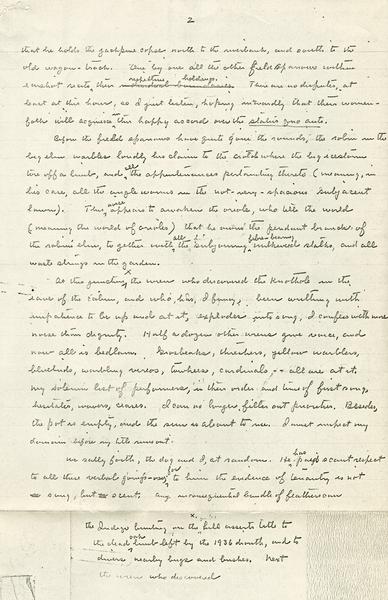 2
that he holds the jackpine copse north to the riverbank, and south to the
old wagon track. One by one all the other field sparrows within
earshot recite their respective holdings.
individual boundaries. There are no disputes, at
least at this hour, so I just listen, hoping inwardly that their women-
folk will acquiesce in this happy accord over the status quo ante.
Before the field sparrows have quite gone the rounds, the robin in the
big elm warbles loudly his claim to the crotch where the icestorm
tore off a limb, and all the appurtenances pertaining thereto (meaning, in
his case, all the angle worms in the not-very-spacious subjacent
lawn). This appears to awaken the oriole, who tells the world
(meaning the world of orioles) that he owns the pendant branches of
the robin's elm, together with all fibre-bearing
milkweed stalks, and all
waste strings in the garden.
At this juncture, the wren who discovered the knothole in the
eave of the cabin, and who has, I fancy, been writhing with
impatience to be up and at it, explodes into song, I confess with more
noise than dignity. Half a dozen other wrens give voice, and
now all is bedlam. Grosbeaks, thrashers, yellow warblers,
bluebirds, warbling vireos, towhees, cardinals, -- all are at it.
My solemn list of performers, in their order and time of first song,
hesitates, wavers, ceases. I can no longer filter out priorities. Besides,
the pot is empty, and the sun is about to rise. I must inspect my
domain before my title runs out.
We sally forth, the dog and I, at random. He has paid scant respect
to all these verbal goings-on, for to him the evidence of tenantry is not
song, but scent. Any unconsequential bundle of feathers can
the Indigo bunting on the hill asserts title to
the dead oak limb left by the 1936 drouth, and to
divers nearby bugs and bushes. Next
the wren who discovered